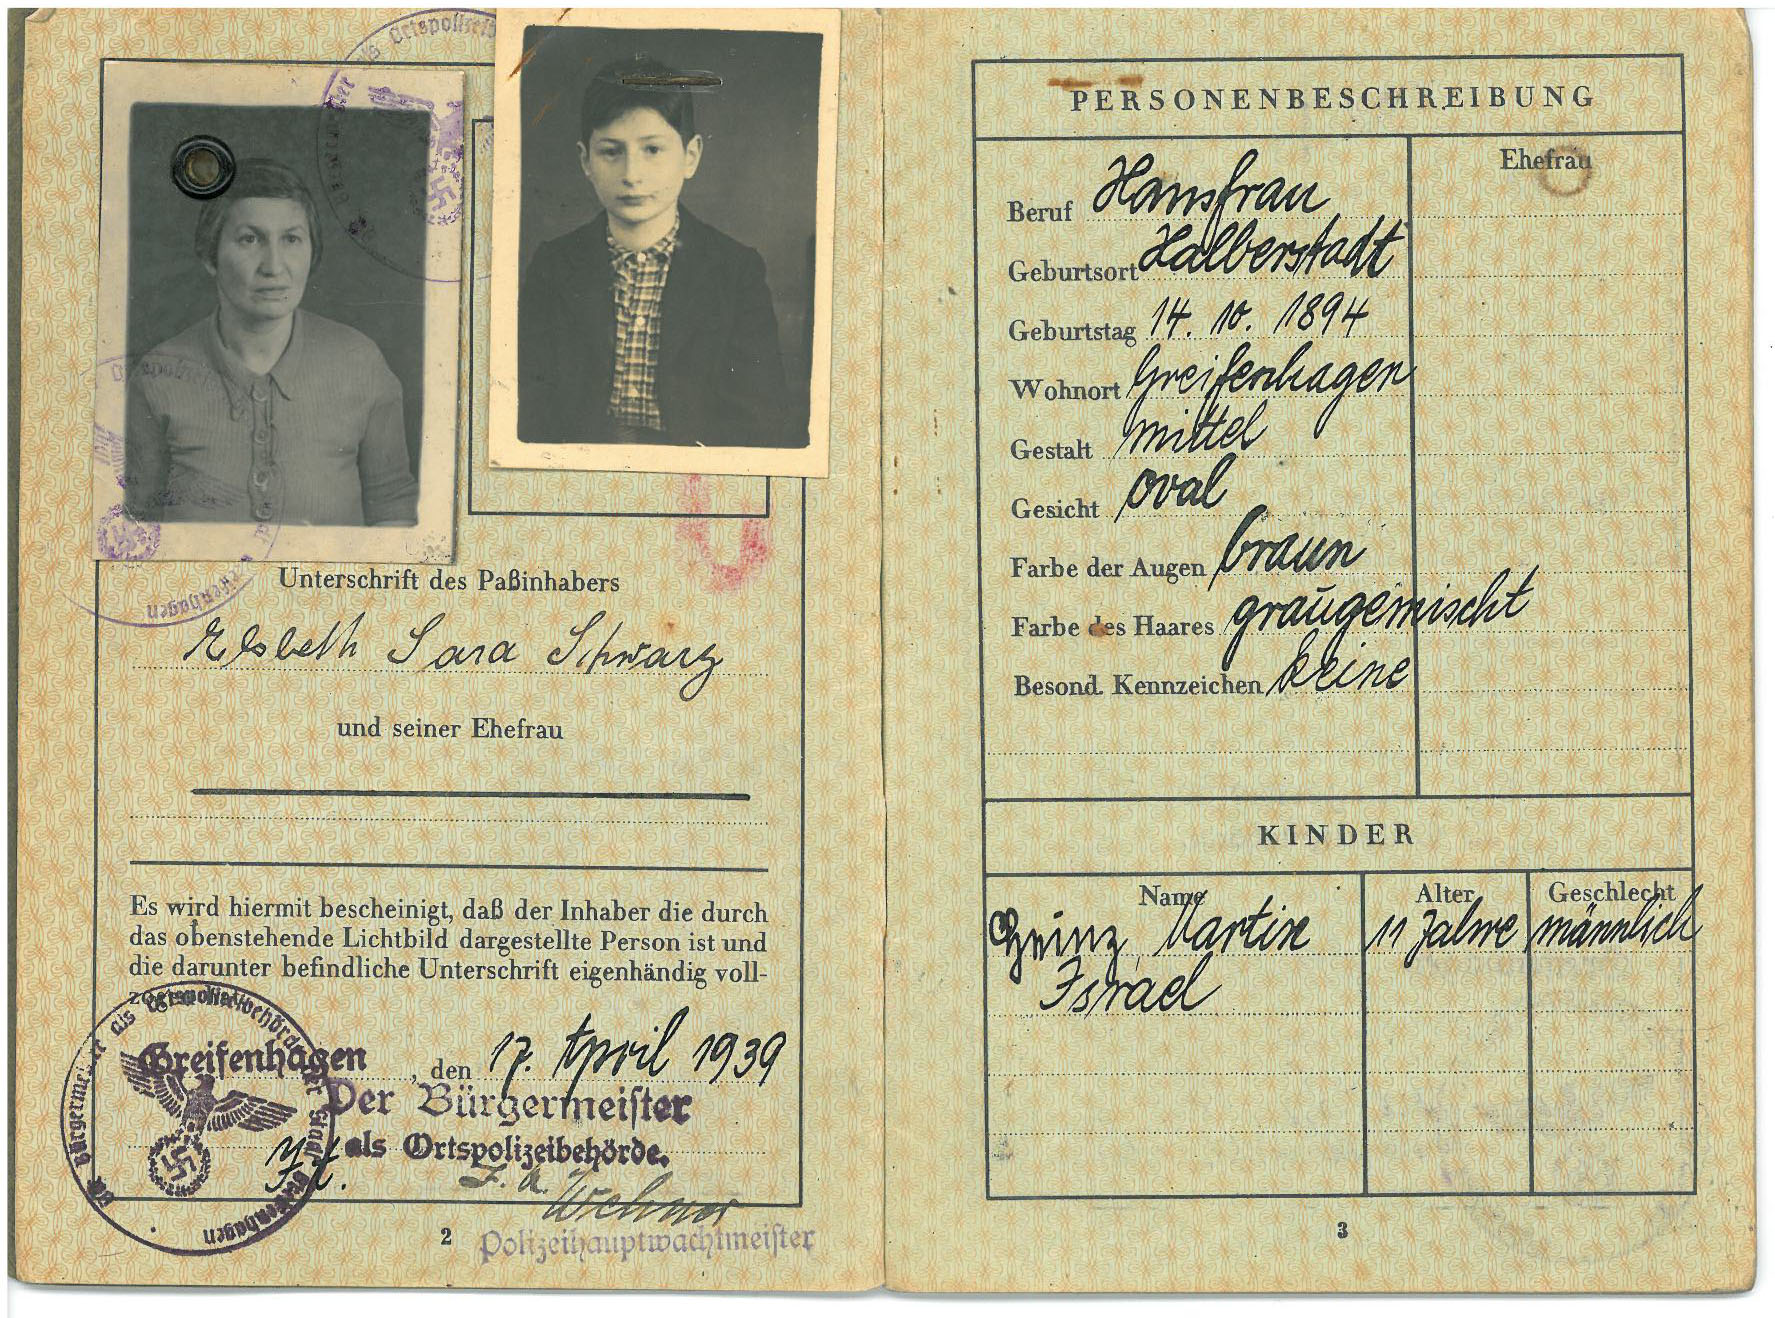 Unterschrift des Paßinhabers
Elsbeth Sara Schwarz
und seiner Ehefrau
Es wird hiermit bescheinigt, daß der Inhaber die durch
das obenstehende Lichtbild dargestellte Person ist und
die darunter befindliche Unterschrift eigenhändig voll-
zogen hat.
Greifenhagen, den 17. April 1939
Der Bürgermeister
als Ortspolizeibehörde.
J. A.
Wehner
Polizeihauptwachtmeister
Der Bürgermeister als Ortspolizeibehörde der Stadt Greifenhagen
2
PERSONENBESCHREIBUNG
Ehefrau
Beruf Hausfrau
Geburtsort Halberstadt
Geburtstag 14. 10. 1894
Wohnort Greifenhagen
Gestalt mittel
Gesicht oval
Farbe der Augen braun
Farbe des Haares graugemischt
Besond. Kennzeichen keine
KINDER
Name Alter Geschlecht
Heinz Martin 11 Jahre männlich
Israel
3